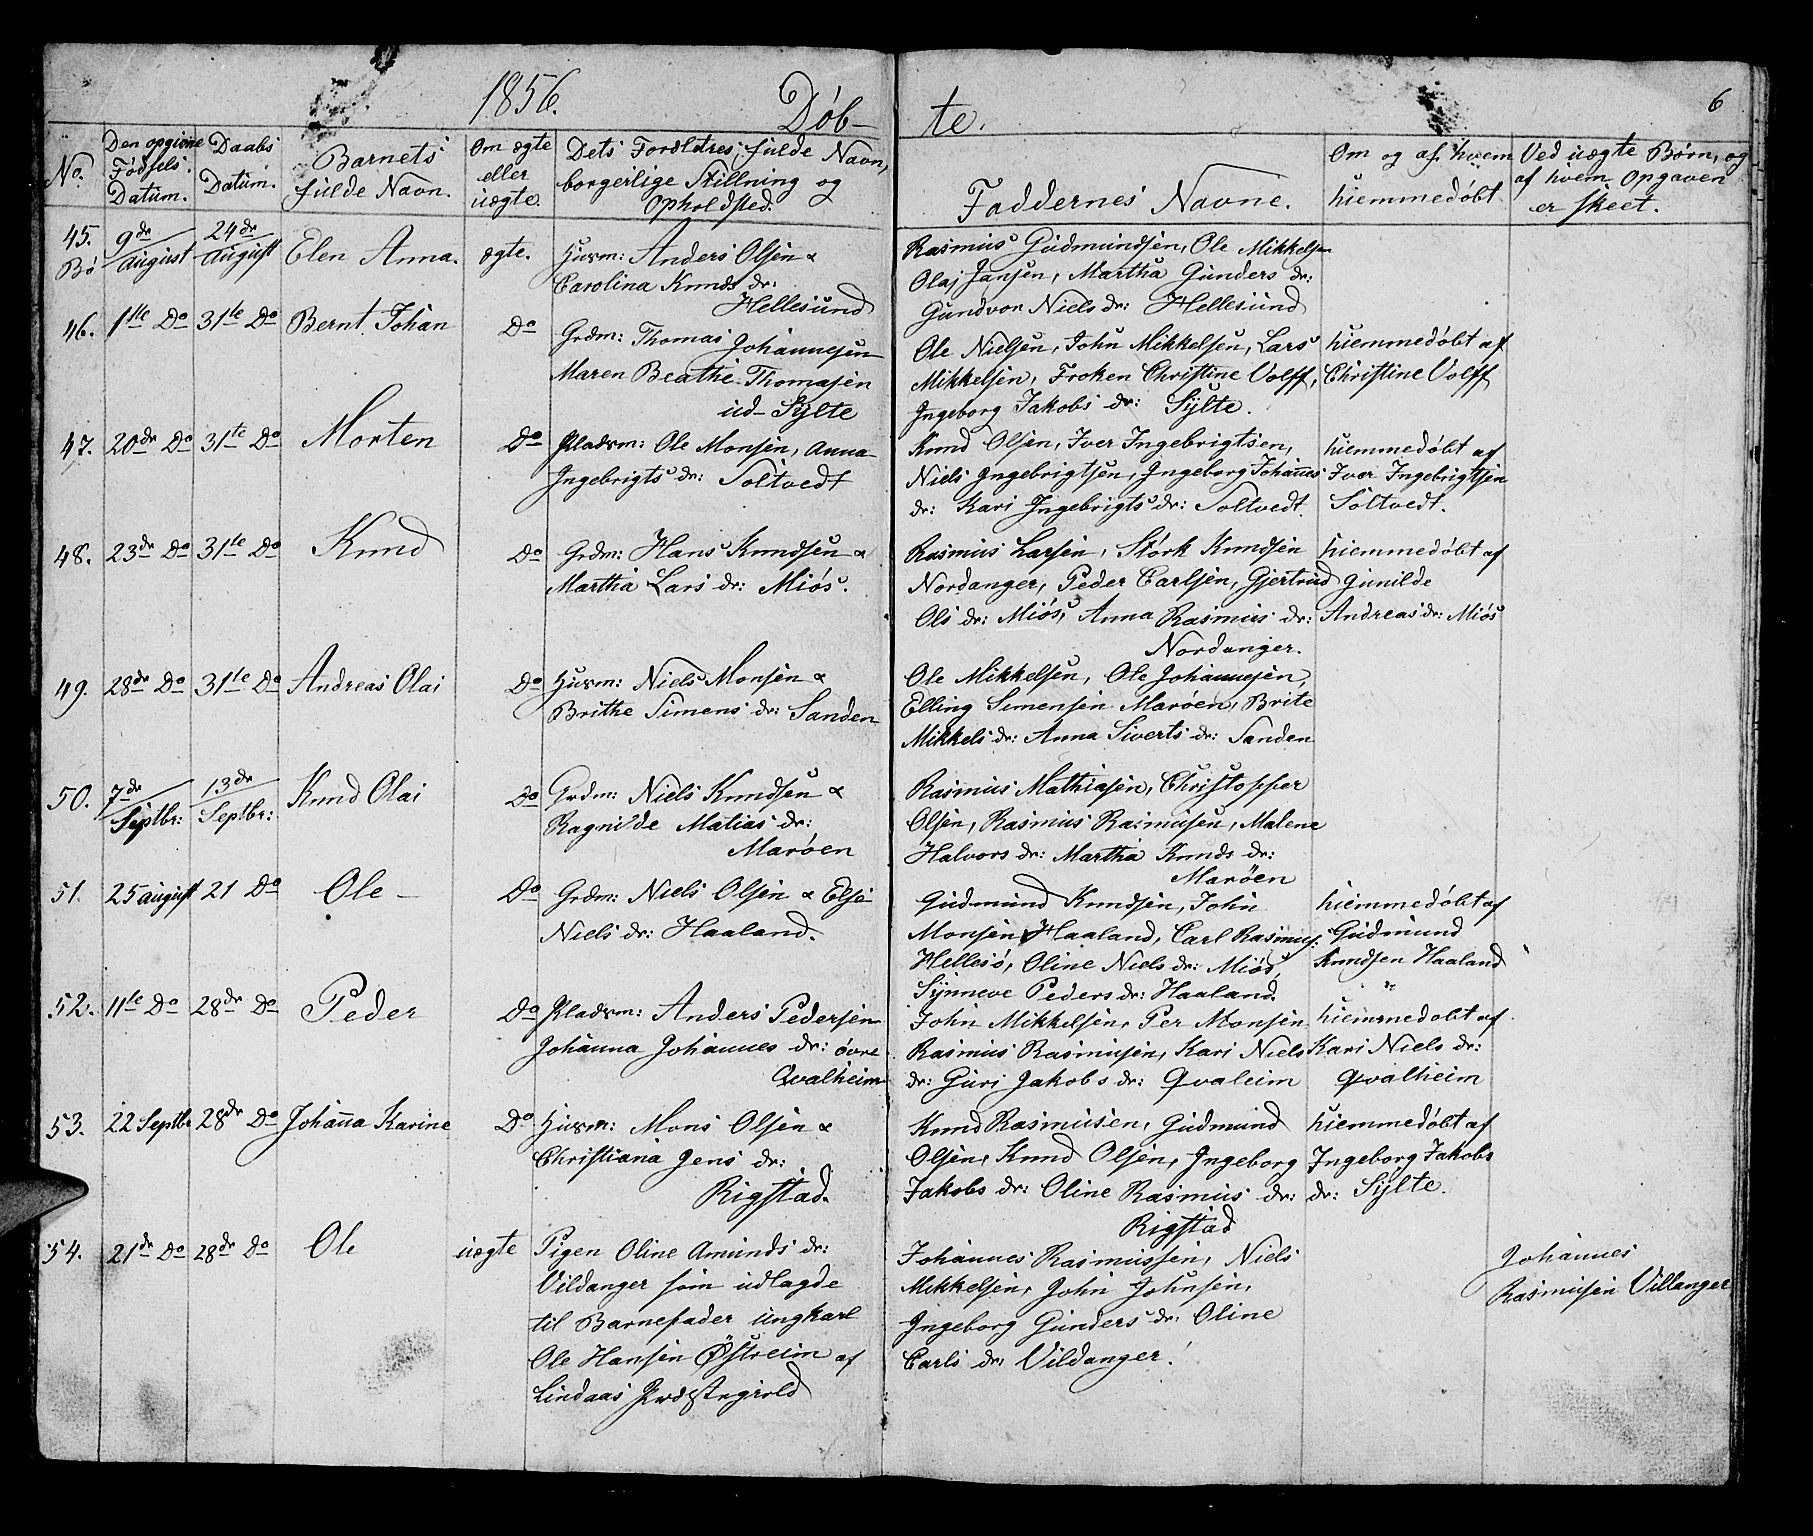 1856. Döb- te. 6
No. Den opgivne Fødsels Datum. Daabs Datum. Barnets fulde Navn. Om ægte eller uægte. Dets Forældres fulde Navn, borgerlige Stillning og Opholdsted. Faddernes Navne. Om og af hvem hiemmedøbt Ved uægte Børn, og af hvem Opgaven er skeet.
45. 9de August 24de August Elen Anna. ægte. Husm: Anders Olsen & Rasmus Gudmundsen, Ole Mikkelsen
Bø Carolina Knuds dr: Olaj Jansen, Martha Gunders dr:
Hellesund Gundvor Niels dr: Hellesund
46. 1ste Do 31te Do Bernt Johan Do Grdm: Thomas Johannesen Ole Nielsen, John Mikkelsen, Lars hiemmedøbt af
Maren Beathe Thomasen Mikkelsen, Frøken Christine Volff, Christine Volff
ud- Sylte Ingeborg Jakobs dr: Sylte.
47. 20de Do 31te Do Morten Do Pladsm: Ole Monsen, Anna Knud Olsen, Iver Ingebrigtsen, hiemmedøbt af
Ingebrigts dr: Soltvedt Niels Ingebrigtsen, Ingeborg Johannes Iver Ingebrigtsen
dr: Kari Ingebrigts dr: Soltvedt. Soltvedt.
48. 23de Do 31te Do Knud Do Grdm: Hans Knudsen & Rasmus Larsen, Størk Knudsen hiemmedøbt af
Martha Lars dr: Miøs. Nordanger, Peder Carlsen, Gjertrud Gunilde
Ols dr: Miøs, Anna Rasmus dr: Andreas dr: Miøs
Nordanger.
49. 28de Do 31te Do Andreas Olai Do Husm: Niels Monsen & Ole Mikkelsen, Ole Johannesen,
Brithe Simens dr: Sanden Elling Simensen Marøen, Brite
Mikkels dr: Anna Siverts dr: Sanden
50. 7de Septbr: 13de Septbr: Knud Olai Do Grdm: Niels Knudsen & Rasmus Mathiasen, Christopper
Ragnilde Matias dr: Olsen, Rasmus Rasmusen, Malene
Marøen Halvors dr: Martha Knuds dr:
Marøen
51. 25 August 21 Do Ole Do Grdm: Niels Olsen & Elsje Gudmund Knudsen, John hiemmedøbt af
Niels dr: Haaland. Monsen Haaland, Carl Rasmus. Gudmund
Hellesø, Oline Niels dr: Miøs, Knudsen Haaland
Synneve Peders dr: Haaland. "
52. 11te Do 28de Do Peder Do Pladsm: Anders Pedersen John Mikkelsen, Per Monsen hiemmedøbt af
Johanna Johannes dr: øvre Rasmus Rasmusen, Kari Niels Kari Niels dr:
Qvalheim dr: Guri Jakobs dr: Qvaleim Qvalheim
53. 22 Septbr 28de Do Johanna Karine Do Husm: Mons Olsen & Knud Rasmusen, Gudmund hiemmedøbt af
Christiana Jens dr: Olsen, Knud Olsen, Ingeborg Ingeborg Jakobs
Rigstad. Jakobs dr: Oline Rasmus dr: dr: Sylte.
Rigstad
54. 21de Do 28de Do Ole uægte Pigen Oline Amunds dr: Johannes Rasmussen, Niels Johannes
Vildanger som udlagde Mikkelsen, John Johnsen, Rasmusen Villanger
til Barnefader ungkarl Ingeborg Gunders dr: Oline
Ole Hansen Østreim af Carls dr: Vildanger.
Lindaas Prdstegield